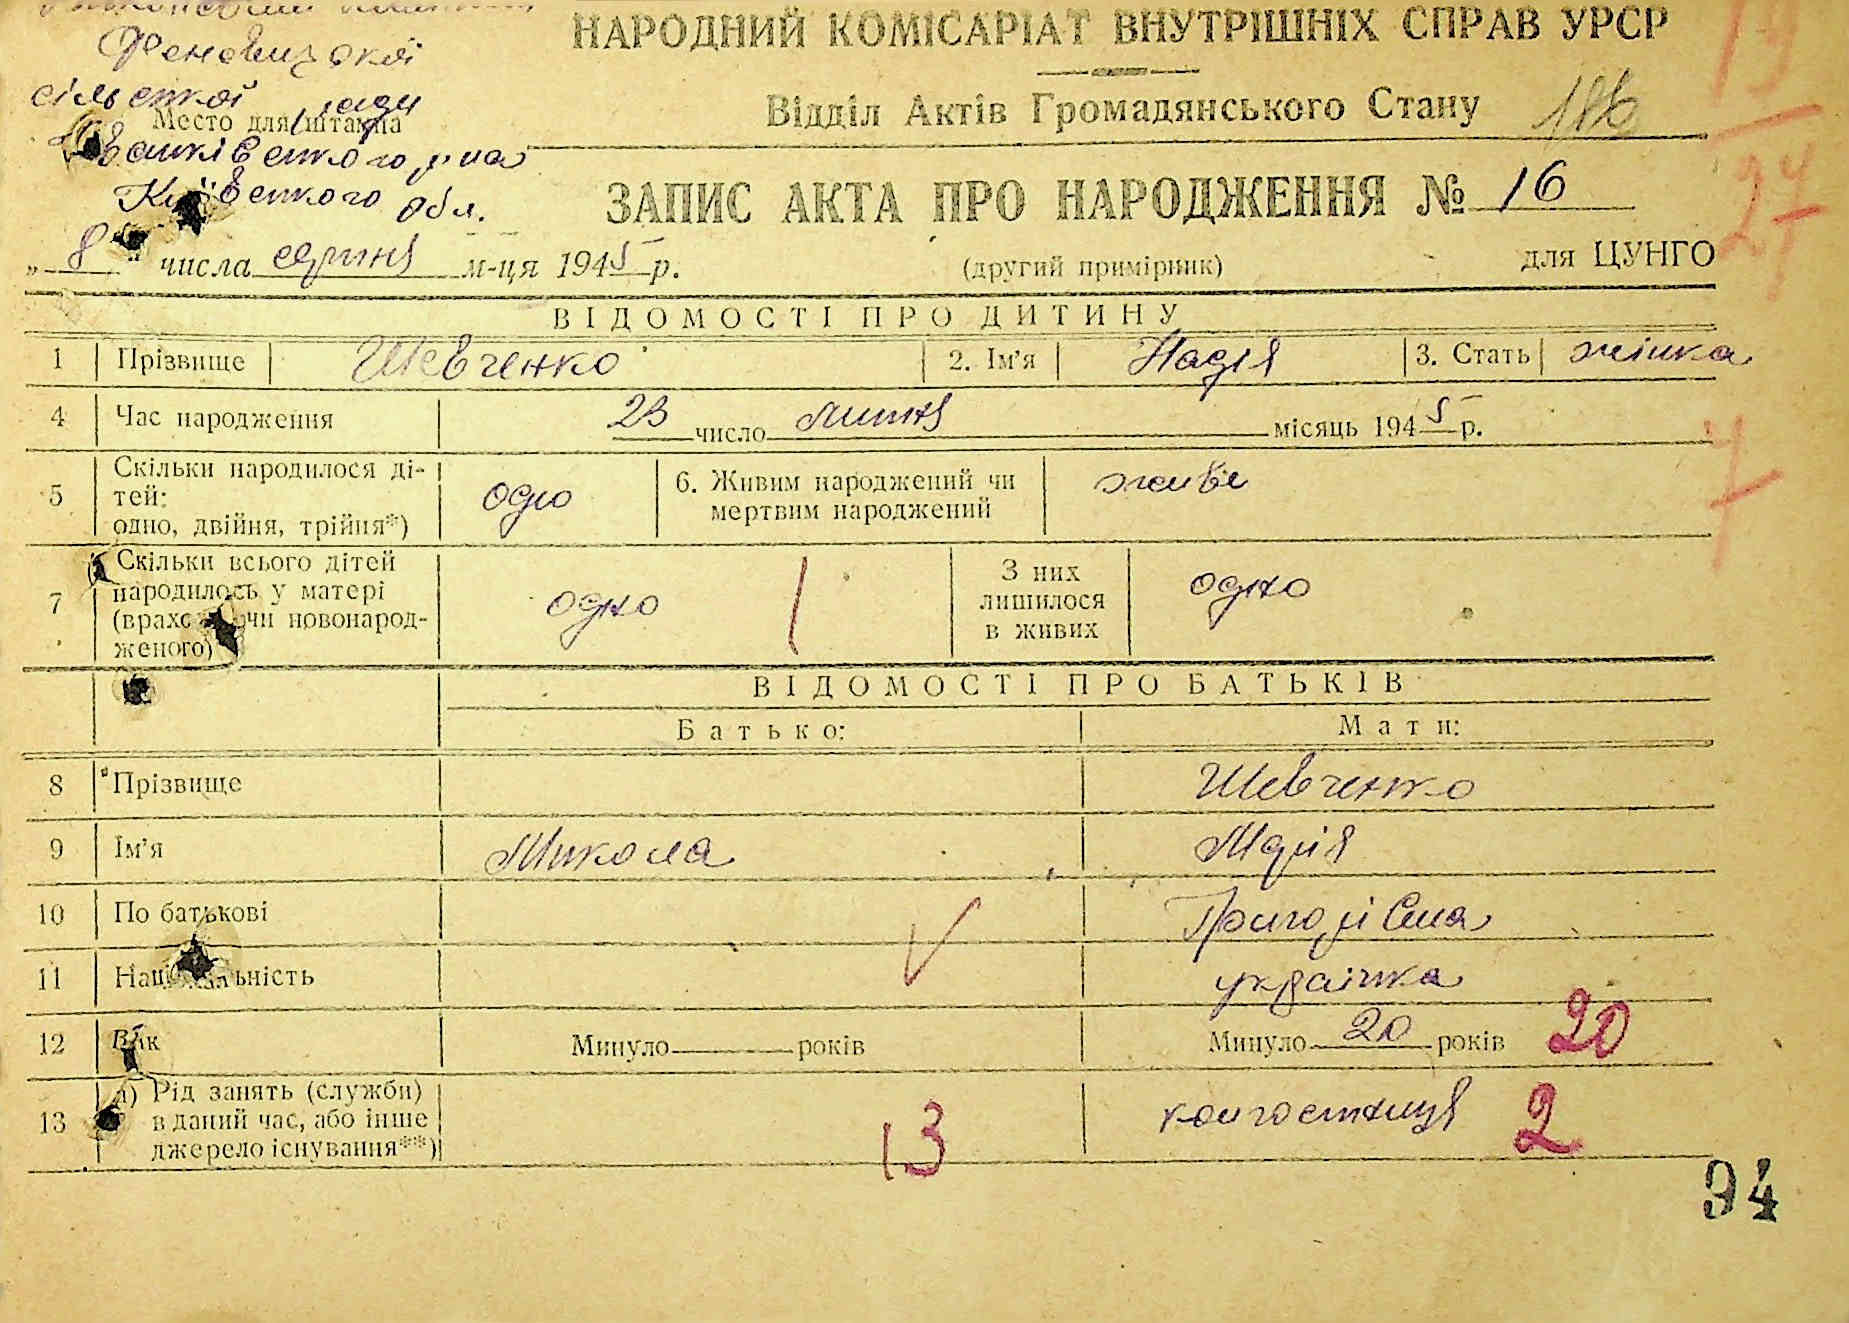 Феневицької
сільської ради
Место для штампа
Іванківського р-на
Київського обл.
НАРОДНИЙ КОМІСАРІАТ ВНУТРІШНІХ СПРАВ УРСР
Відділ Актів Громадянського Стану
ЗАПИС АКТА ПРО НАРОДЖЕННЯ № 16
„ 8 “ числа серпня м-ця 1945 р. (другий примірник) для ЦУНГО
ВІДОМОСТІ ПРО ДИТИНУ
1 Прізвище Шевченко 2. Ім'я Надія 3. Стать жінка
4 Час народження 23 число липня місяць 1945 р.
5 Скільки народилося ді-
тей:
одно, двійня, трійня*) одно 6. Живим народжений чи
мертвим народжений живе
7 Скільки всього дітей
народилось у матері
(врахо чи новонарод-
женого) одно 1 З них
лишилося
в живих одно
ВІДОМОСТІ ПРО БАТЬКІВ
Батько: Мати:
8 Прізвище Шевченко
9 Ім'я Микола Марія
10 По батькові Григорівна
11 Наці льність українка
12 Вік Минуло років Минуло 20 років 20
13 а) Рід занять (служби)
в даний час, або інше
джерело існування**) 13 колгостниця 2
94